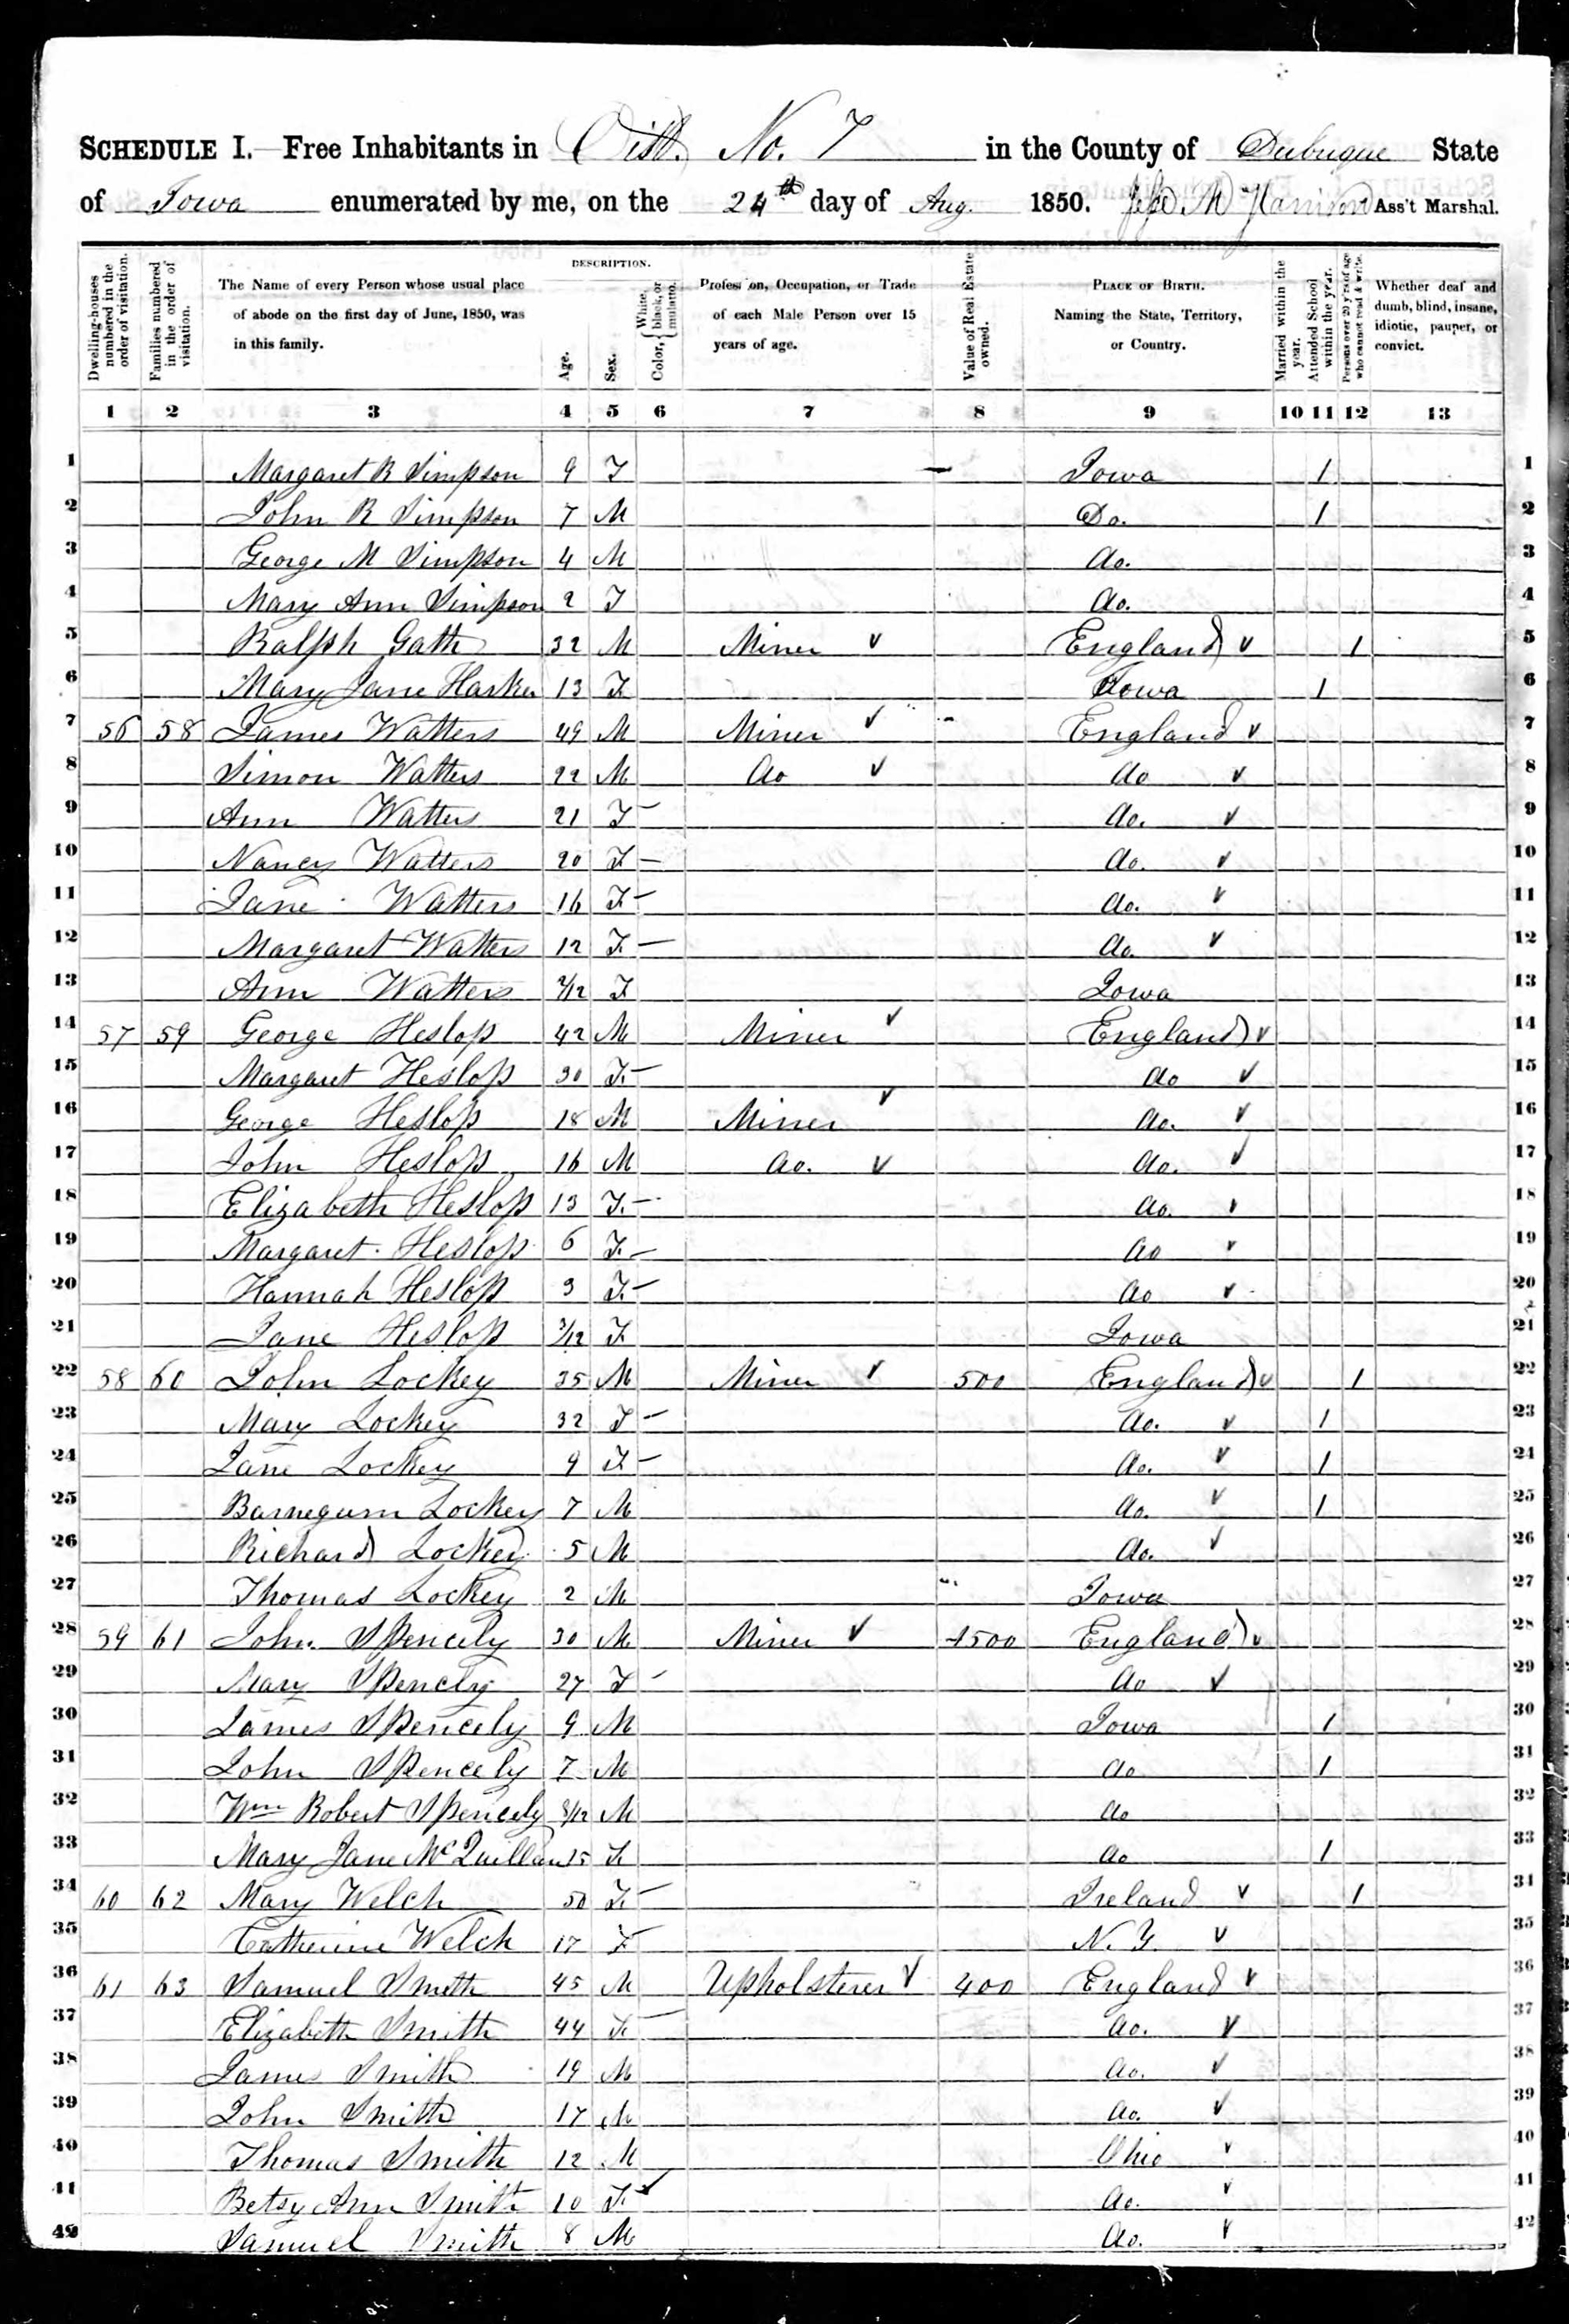 SCHEDULE I. Free Inhabitants in Dist. No. 7 in the County of Dubuque State
of Iowa enumerated by me, on the 24th day of Aug. 1850. Harrison Ass't Marshal.
Dwelling-houses numbered in the order of visitation.
Families numbered in the order of visitation.
The Name of every Person whose usual place of abode on the first day of June, 1850, was in this family.
DESCRIPTION.
Age.
Sex.
Color, White, black, or mulatto.
Profession, Occupation, or Trade of each Male Person over 15 years of age.
Value of Real Estate owned.
PLACE OF BIRTH. Naming the State, Territory, or Country.
Married within the year.
Attended School within the year.
Persons over 20 y'rs of age who cannot read & write.
Whether deaf and dumb, blind, insane, idiotic, pauper, or convict.
1 2 3 4 5 6 7 8 9 10 11 12 13
1 Margaret R Simpson 9 F Iowa 1 1
2 John R Simpson 7 M Do. 1 2
3 George M Simpson 4 M do. 3
4 Mary Ann Simpson 2 F do. 4
5 Ralph Gath 32 M Miner England 1 5
6 Mary Jane Harker 13 F Iowa 1 6
7 56 58 James Watters 49 M Miner England 7
8 Simon Watters 22 M do do 8
9 Ann Watters 21 F do. 9
10 Nancy Watters 20 F do. 10
11 Jane Watters 16 F do. 11
12 Margaret Watters 12 F. do. 12
13 Ann Watters /12 F Iowa 13
14 57 59 George Heslop 42 M Miner England 14
15 Margaret Heslop 30 F. do 15
16 George Heslop 18 M Miner do. 16
17 John Heslop 16 M do. do. 17
18 Elizabeth Heslop 13 F. do. 18
19 Margaret Heslop 6 F. do 19
20 Hannah Heslop 3 F. do 20
21 Jane Heslop 3/12 F Iowa 21
22 58 60 John Lockey 35 M Miner 500 England 1 22
23 Mary Lockey 32 F do. 1 23
24 Jane Lockey 9 F do. 1 24
25 Barnegum Lockey 7 M do. 1 25
26 Richard Lockey 5 M do. 26
27 Thomas Lockey 2 M Iowa 27
28 59 61 John Spencely 30 M Miner 1500 England 28
29 Mary Spencely 27 F do 29
30 James Spencely 9 M Iowa 1 30
31 John Spencely 7 M do 1 31
32 Wm Robert Spencely 8/12 M do 32
33 Mary Jane McQuillan 15 F do 1 33
34 60 62 Mary Welch 50 F. Ireland 1 34
35 Catherine Welch 17 F N.Y. 35
36 61 63 Samuel Smith 45 M Upholsterer 400 England 36
37 Elizabeth Smith 44 F. do. 37
38 James Smith 19 M do. 38
39 John Smith 17 M do. 39
40 Thomas Smith 12 M Ohio 40
41 Betsy Ann Smith 10 F. do. 41
42 Samuel Smith 8 M do. 42